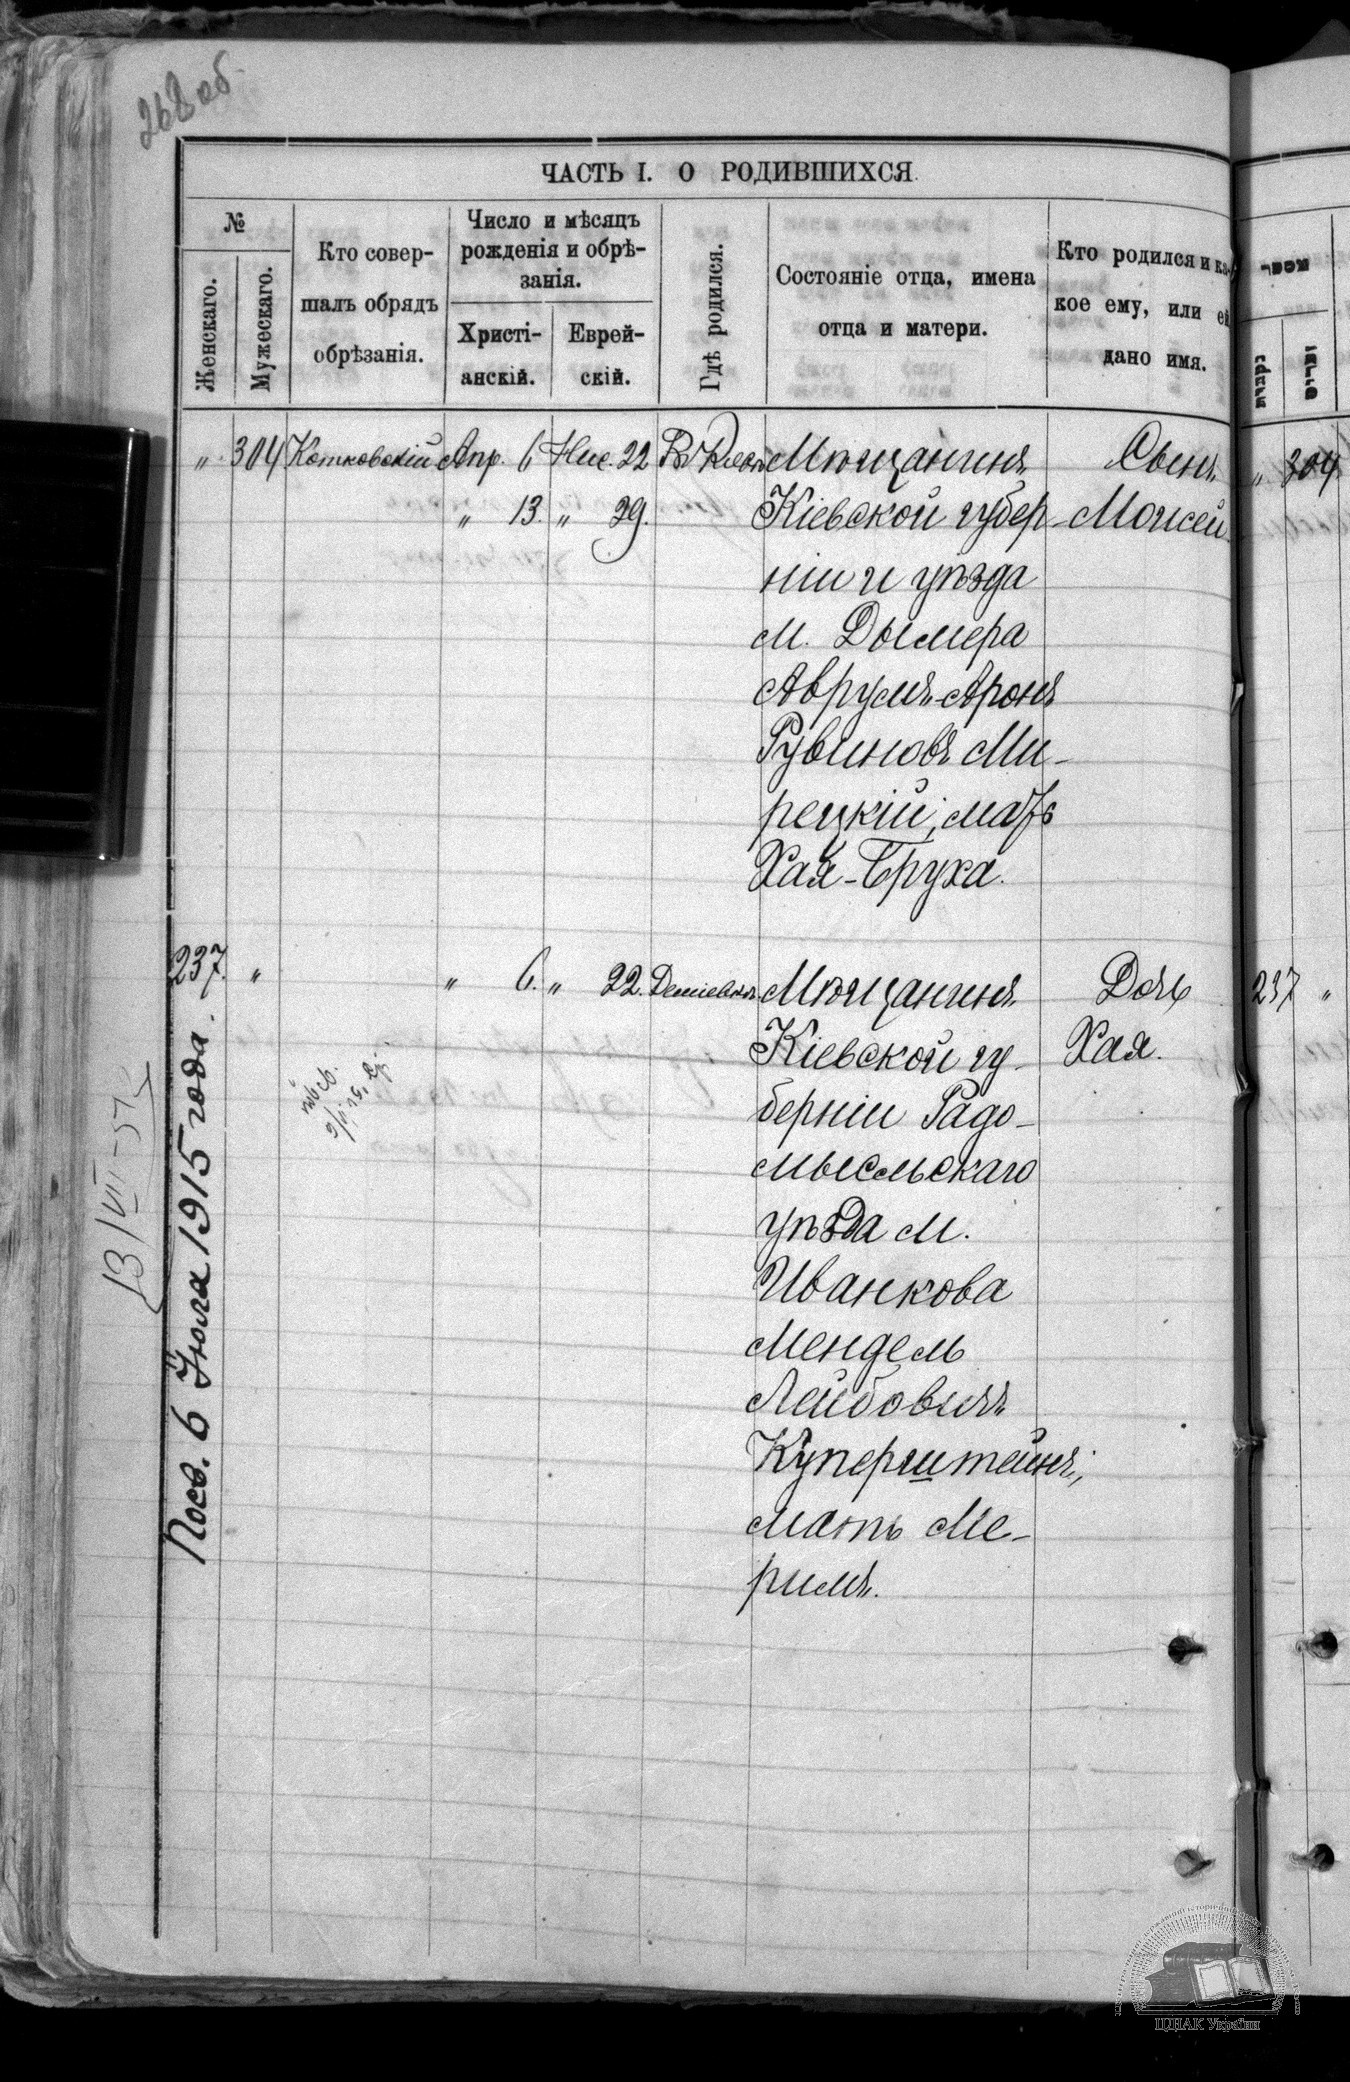 268 об
ЧАСТЬ I. О РОДИВШИХСЯ.
№
Женскаго.
Мужескаго.
Кто совер-
шалъ обрядъ
обрѣзанія.
Число и мѣсяцъ
рожденія и обрѣ-
занія.
Христі-
анскій.
Еврей-
скій.
Гдѣ родился.
Состояніе отца, имена
отца и матери.
Кто родился и ка-
кое ему, или ей
дано имя.
„ 304 Котковскій Апр. 6 Нис. 22 Мѣщанинъ Сынъ „ 304
„ 13. „ 29. Кіевской губер- Моисей.
ніи и уѣзда
м. Дымера
Аврумъ-Аронъ
Рувиновъ Ми-
рецкій, мать
Хая-Бруха.
237. „ „ 6. „ 22. Деміевка. Мѣщанинъ Дочь 237 „
Кіевской гу- Хая.
берніи Радо-
мысльскаго
уѣзда м.
Иванкова
Мендель
Лейбовичъ
Куперштейнъ,
мать Ме-
римъ.
Посв. 6 Іюля 1915 года.
13/VII-57
ЦДІАК України